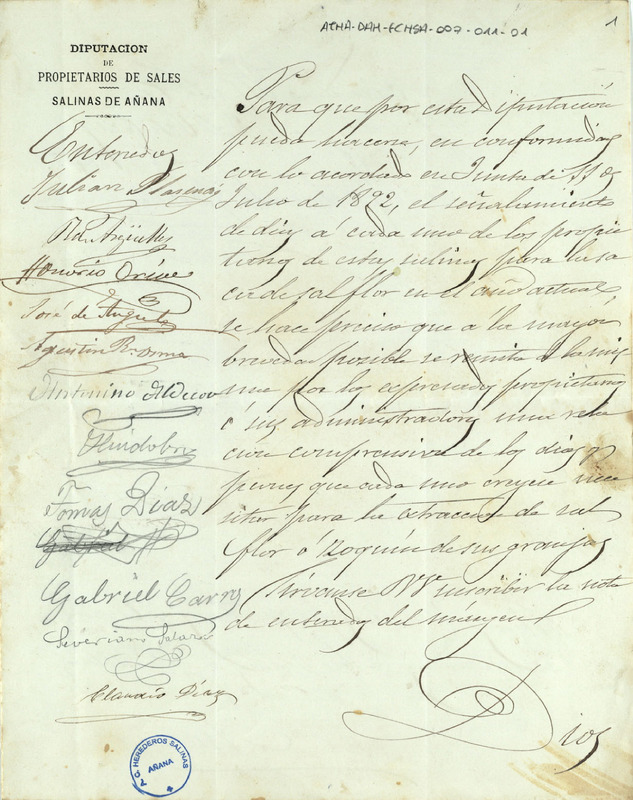 ATHA-DAH-FCHSA-007-011-01
1
DIPUTACION
DE
PROPIETARIOS DE SALES
SALINAS DE AÑANA
Enterados
Julian Plasencia
Rd. Argüelles
Honorio Orive
José de Angulo
Agustin R. Orma
Antonino Aldecoa
Hindobro
Tomas Díaz
Gabriel
Gabriel Carro
Severiano Salazar
Claudio Díaz
Para que por esta Diputación
pueda hacerse, en conformidad
con lo acordado en Junta de 11 de
Julio de 1892, el señalamiento
de dias á cada uno de los propie
tarios de estas salinas para la sa
ca de sal flor en el año actual
se hace preciso que á la mayor
brevedad posible se remita á la mis
ma por los expresados propietarios
ó sus administradores una rela
cion comprensiva de los dias y
peones que cada uno crea nece
sitar para la extraccion de sal
flor ó zoquín de sus granjas
Sírvanse VV. suscribir la nota
de enterados del márgen
Dios
C. HEREDEROS SALINAS
AÑANA